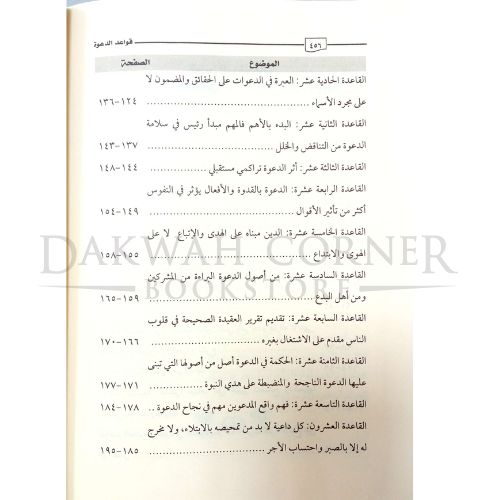 قواعد الدعوة
٤٥٦
الموضوع الصفحة
القاعدة الحادية عشر: العبرة في الدعوات على الحقائق والمضمون لا
على مجرد الأسماء ........ ١٢٤-١٣٦
القاعدة الثانية عشر: البدء بالأهم فالمهم مبدأ رئيس في سلامة
الدعوة من التناقض والخلل ........ ١٣٧-١٤٣
القاعدة الثالثة عشر: أثر الدعوة تراكمي مستقبلي ........ ١٤٤-١٤٨
القاعدة الرابعة عشرة: الدعوة بالقدوة والأفعال يؤثر في النفوس
أكثر من تأثير الأقوال ........ ١٤٩-١٥٤
القاعدة الخامسة عشرة: الدين مبناه على الهدى والإتباع لا على
الهوى والابتداع ........ ١٥٥-١٥٨
القاعدة السادسة عشرة: من أصول الدعوة البراءة من المشركين
ومن أهل البدع ........ ١٥٩-١٦٥
القاعدة السابعة عشرة: تقديم تقرير العقيدة الصحيحة في قلوب
الناس مقدم على الاشتغال بغيره ........ ١٦٦-١٧٠
القاعدة الثامنة عشرة: الحكمة في الدعوة أصل من أصولها التي تبنى
عليها الدعوة الناجحة والمنضبطة على هدي النبوة ........ ١٧١-١٧٧
القاعدة التاسعة عشرة: فهم واقع المدعوين مهم في نجاح الدعوة .. ١٧٨-١٨٤
القاعدة العشرون: كل داعية لا بد من تمحيصه بالابتلاء، ولا مخرج
له إلا بالصبر واحتساب الأجر ........ ١٨٥-١٩٥
DAKWAH CORNER
BOOKSTORE